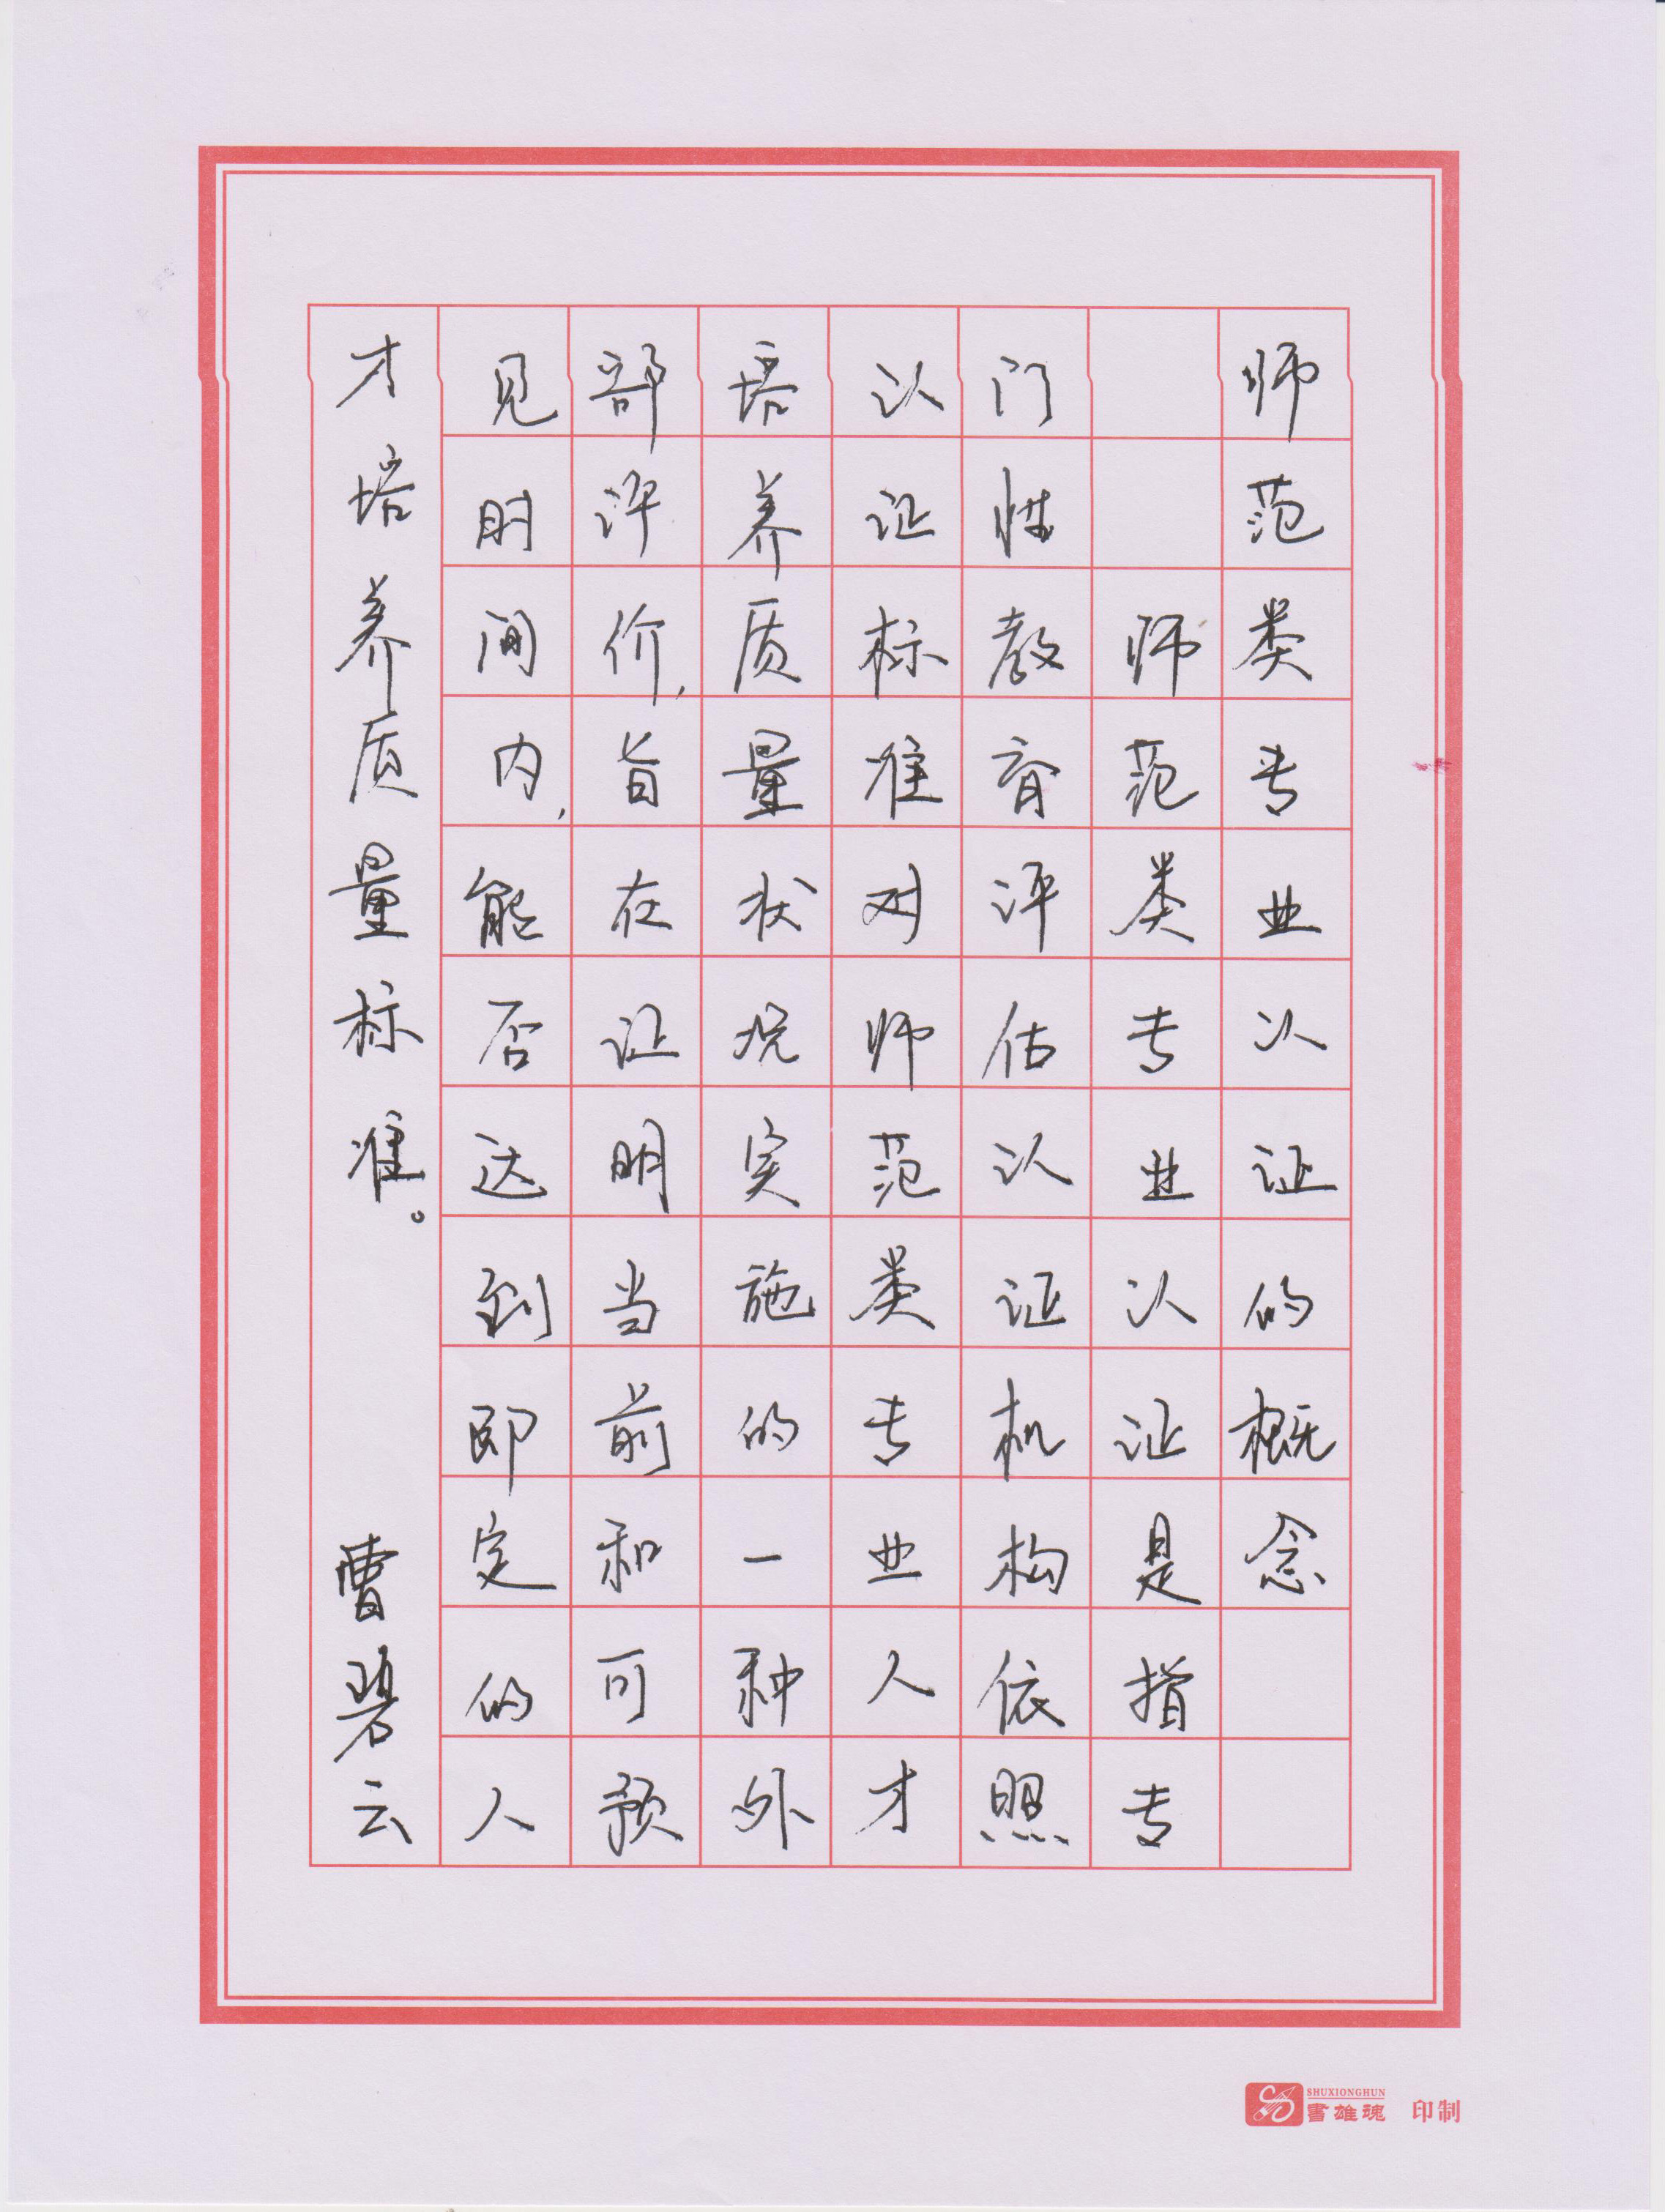 师范类专业认证的概念
师范类专业认证是指专
门性教育评估认证机构依照
认证标准对师范类专业人才
培养质量状况实施的一种外
部评价,旨在证明当前和可预
见时间内,能否达到即定的人
才培养质量标准。 曹碧云
SHUXIONGHUN
書雄魂 印制